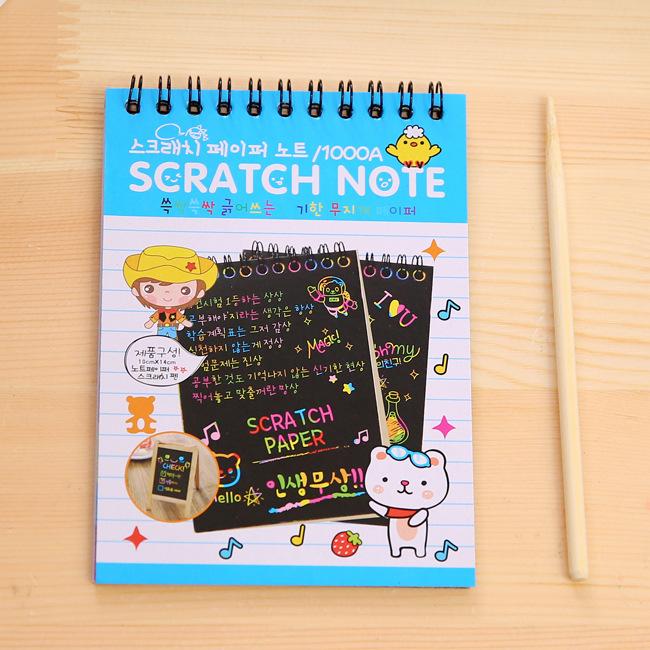 스크래치 페이퍼 노트 /1000A
SCRATCH NOTE
쓱싹쓱싹 긁어쓰는 기한 무지 페이퍼
시험 1등하는 상상
부해야지라는 생각은 항상
학습계획표는 그저 감상
실천하지 않는게 정상
문제는 진상
공부한 것도 기억나지 않는 신기한 현상
찍어놓고 맞출꺼란 망상
Magic!
I U
oh my
친구
제품구성!
10cmX14cm
노트페이퍼
스크래치 펜
SCRATCH
PAPER
CHECK!
Hello
인생무상!!